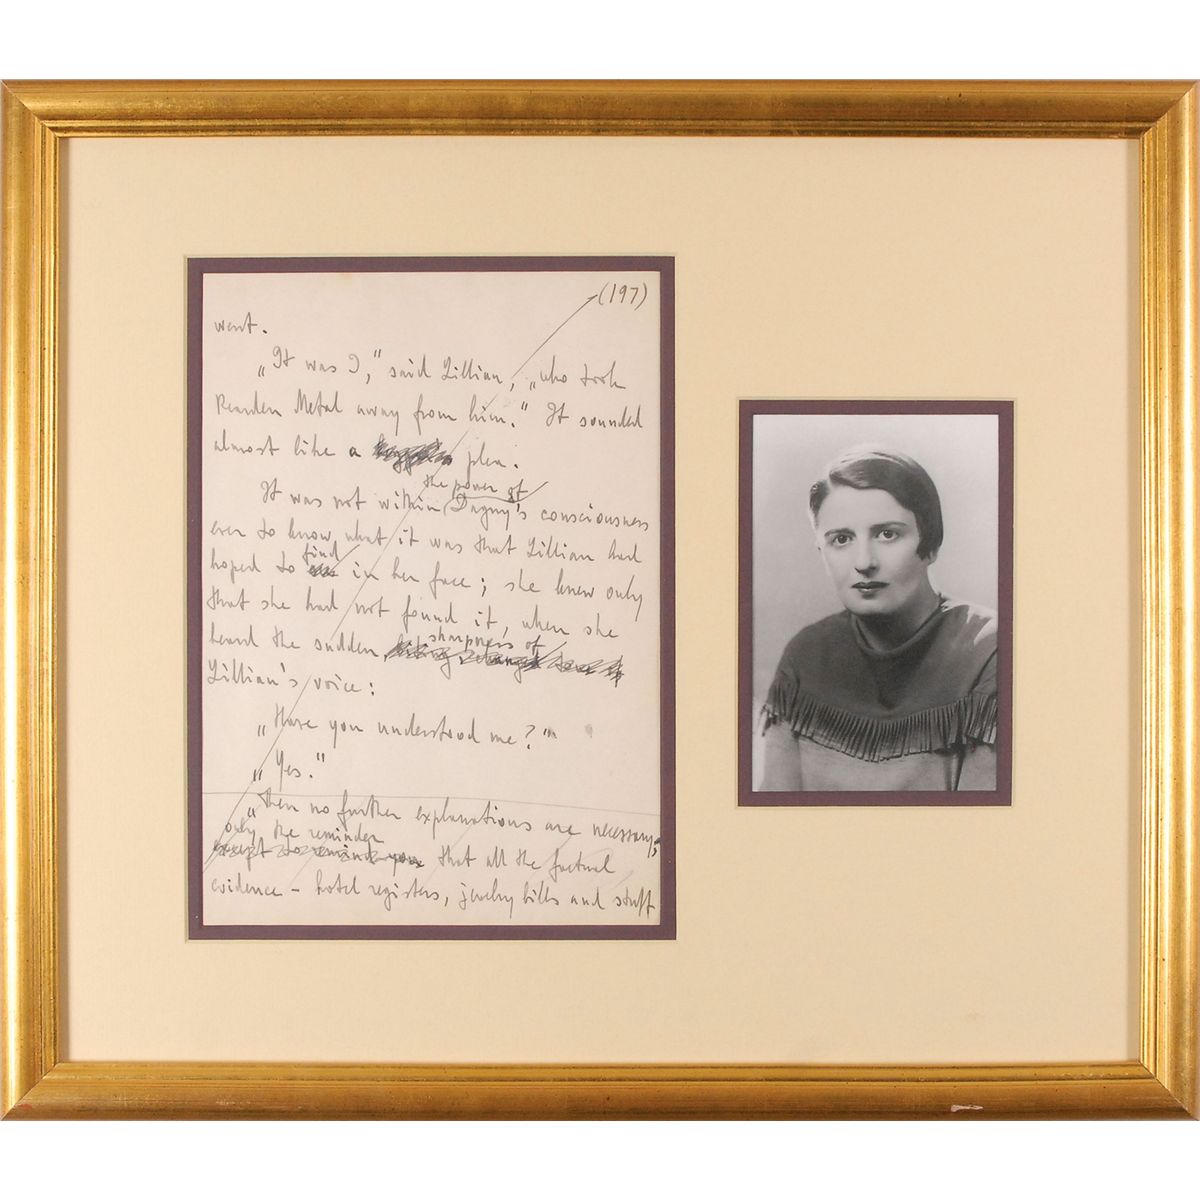 (197)
went.
„It was I,” said Lillian, „who took
Rearden Metal away from him.” It sounded
almost like a plea.
the power of
It was not within Dagny's consciousness
even to know what it was that Lillian had
find
hoped to in her face; she knew only
that she had not found it, when she
sharpness of
heard the sudden
Lillian's voice:
„Have you understood me?”
„Yes.”
„Then no further explanations are necessary;
only the reminder
except to remind you that all the factual
evidence – hotel registers, jewelry bills and stuff